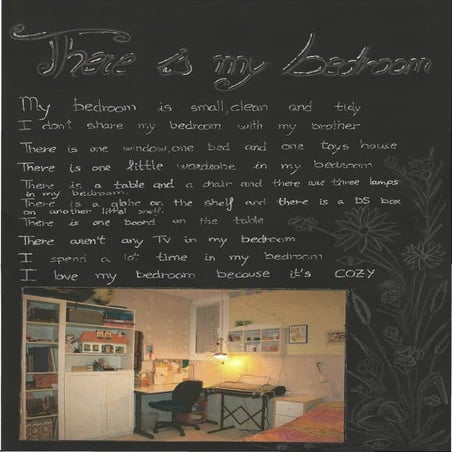 There is my bedroom
My bedroom is small, clean and tidy
I don't share my bedroom with my brother
There is one window, one bed and one toys house
There is one little wardrobe in my bedroom
There is a table and a chair and there are three lamps
in my bedroom.
There is a globe on the shelf and there is a DS box
on another little shelf.
There is one board on the table
There aren't any TV in my bedroom
I spend a lot time in my bedroom
I love my bedroom because it's COZY